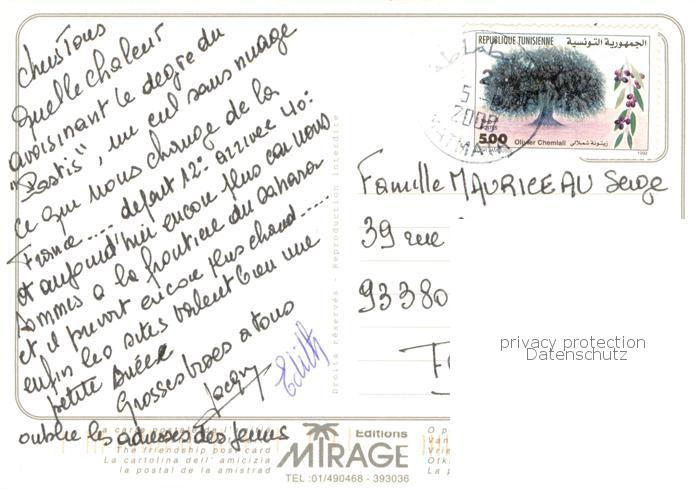 Chers Tous
Quelle chaleur
avoisinant le degré du
"Pastis", un ciel sans nuage
ce que nous change de la
France.... depart 12° arrivée 40°
et aujourd'hui encore plus car nous
sommes a la frontière du Sahara
et, il prevoit encore plus chaud.....
enfin les sites valent bien une
petite suée
Grosses bises a tous
Edith
oublie les adresses des jeunes
REPUBLIQUE TUNISIENNE الجمهورية التونسية
500
Olivier Chemlali زيتونة شملالي
1992
5
2000
MATMATA
Famille MAURICEAU Serge
39 rue
93380
privacy protection
Datenschutz
Droits réservés - Reproduction interdite
La carte postale de l'amitié
The friendship post card
La cartolina dell' amicizia
la postal de la amistrad
Editions
MIRAGE
TEL :01/490468 - 393036